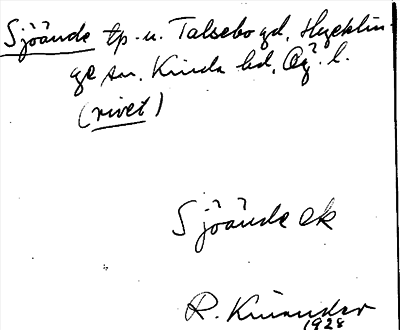 Sjöände tp. u. Talsebo gd, Hycklin-
ge sn. Kinda hd, Ög. l.
(rivet)
Sjöände ek
R. Kinander
1928